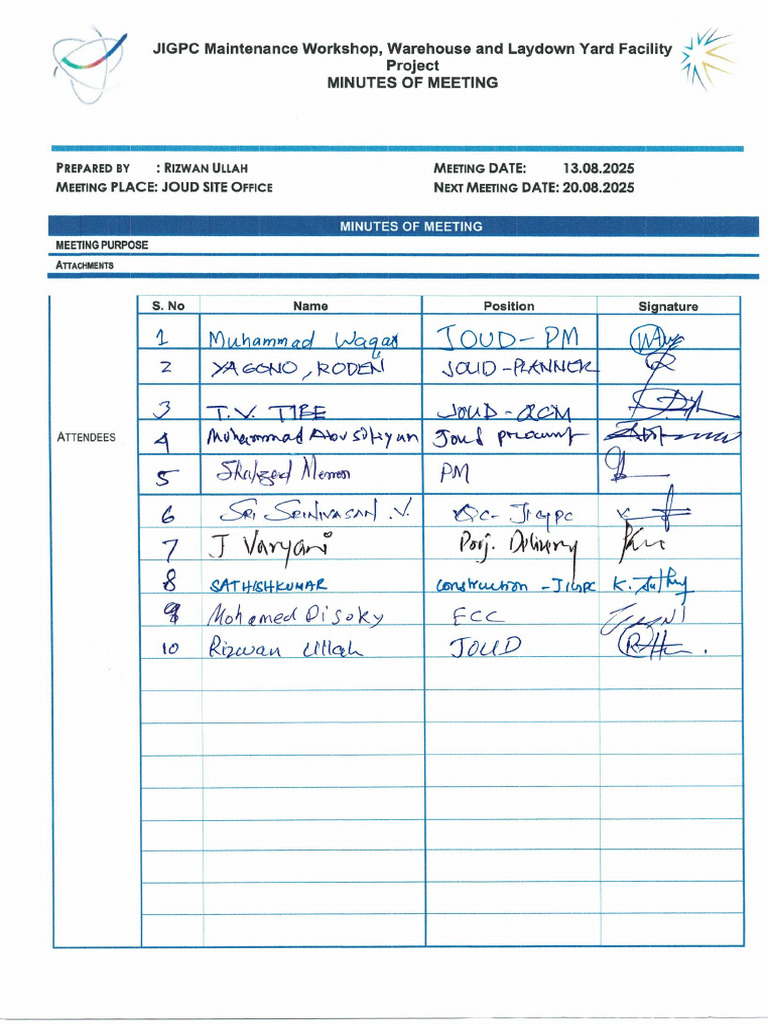 JIGPC Maintenance Workshop, Warehouse and Laydown Yard Facility
Project
MINUTES OF MEETING
PREPARED BY : RIZWAN ULLAH MEETING DATE: 13.08.2025
MEETING PLACE: JOUD SITE OFFICE NEXT MEETING DATE: 20.08.2025
MINUTES OF MEETING
MEETING PURPOSE
ATTACHMENTS
S. No Name Position Signature
1 Muhammad Waqas JOUD-PM
2 YAGONO, RODEN JOUD-PLANNER
3 T.V. TIBE JOUD-QCM
ATTENDEES
4 Muhammad Abu Sufiyan Joud
5 Shahzad Memon PM
6 SRI SRINIVASAN .V. QC-JIGPC
7 J Varyani Porj. Delivery
8 SATHISHKUMAR Construction -JIGPC K.
9 Mohamed Disoky ECC
10 Rizwan Ullah JOUD